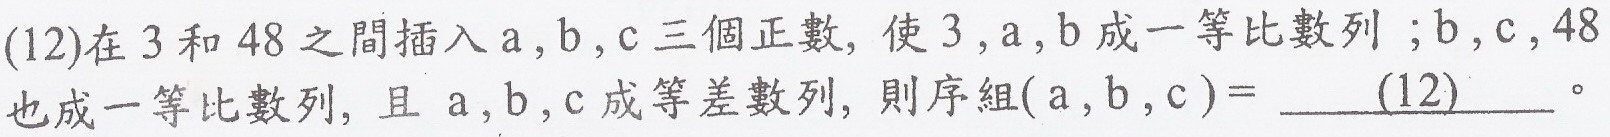 (12)在 3 和 48 之間插入 a , b , c 三個正數, 使 3 , a , b 成一等比數列 ; b , c , 48
也成一等比數列, 且 a , b , c 成等差數列, 則序組( a , b , c ) = ＿＿(12)＿＿ 。